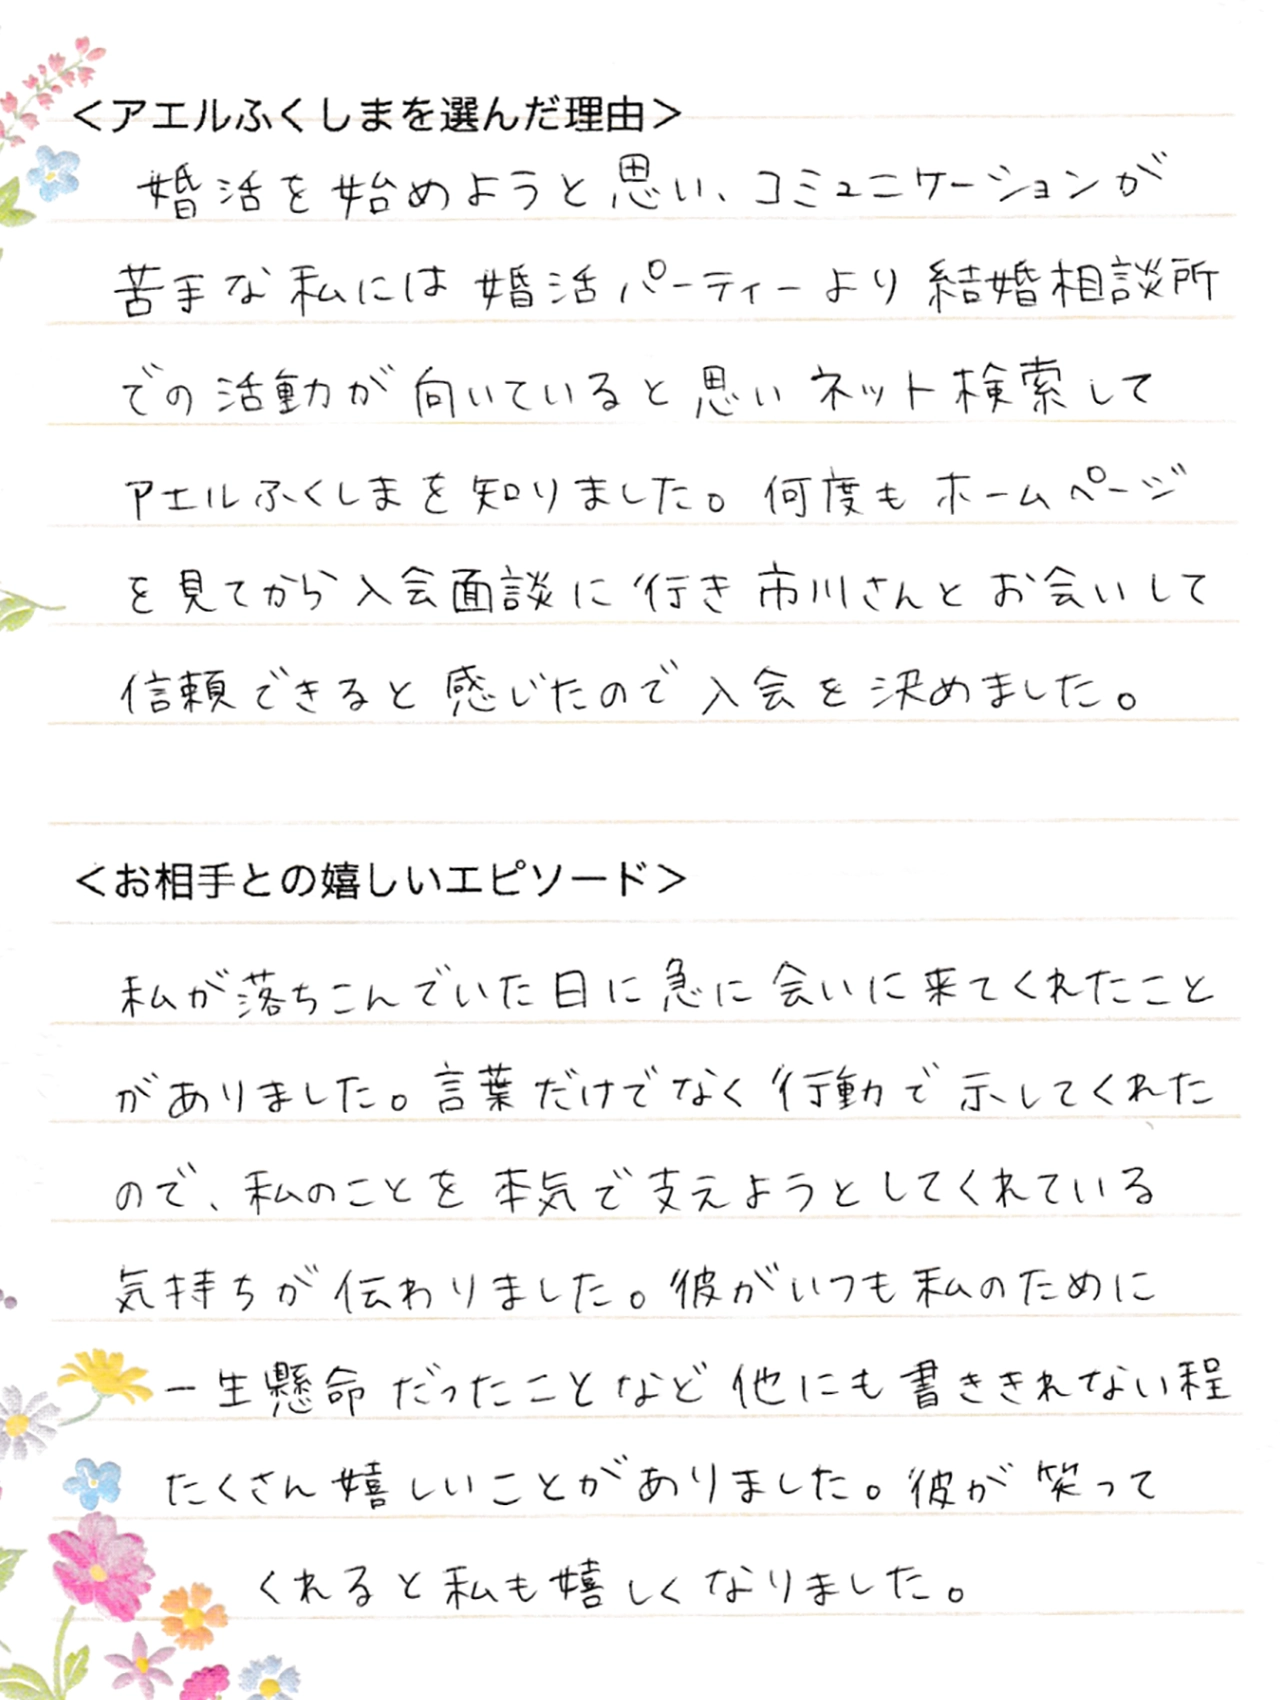 ＜アエルふくしまを選んだ理由＞
婚活を始めようと思い、コミュニケーションが
苦手な私には婚活パーティーより結婚相談所
での活動が向いていると思いネット検索して
アエルふくしまを知りました。何度もホームページ
を見てから入会面談に行き市川さんとお会いして
信頼できると感じたので入会を決めました。
＜お相手との嬉しいエピソード＞
私が落ちこんでいた日に急に会いに来てくれたこと
がありました。言葉だけでなく行動で示してくれた
ので、私のことを本気で支えようとしてくれている
気持ちが伝わりました。彼がいつも私のために
一生懸命だったことなど他にも書ききれない程
たくさん嬉しいことがありました。彼が笑って
くれると私も嬉しくなりました。